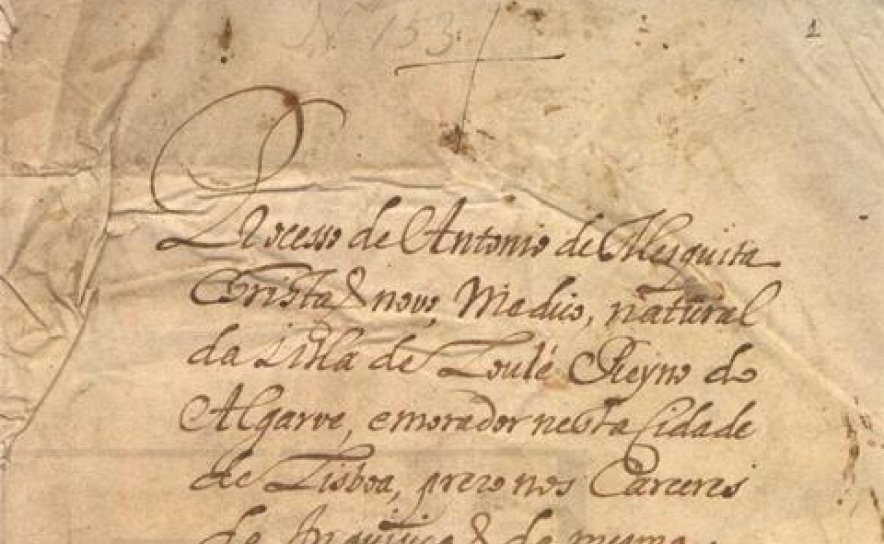 N 153
1
Processo de Antonio de Mesquita
Cristaõ novo, Medico, natural
da Villa de Loulé Reyno do
Algarve, e morador nesta Cidade
de Lisboa, prezo nos Carceres
da Inquisiçaõ da mesma